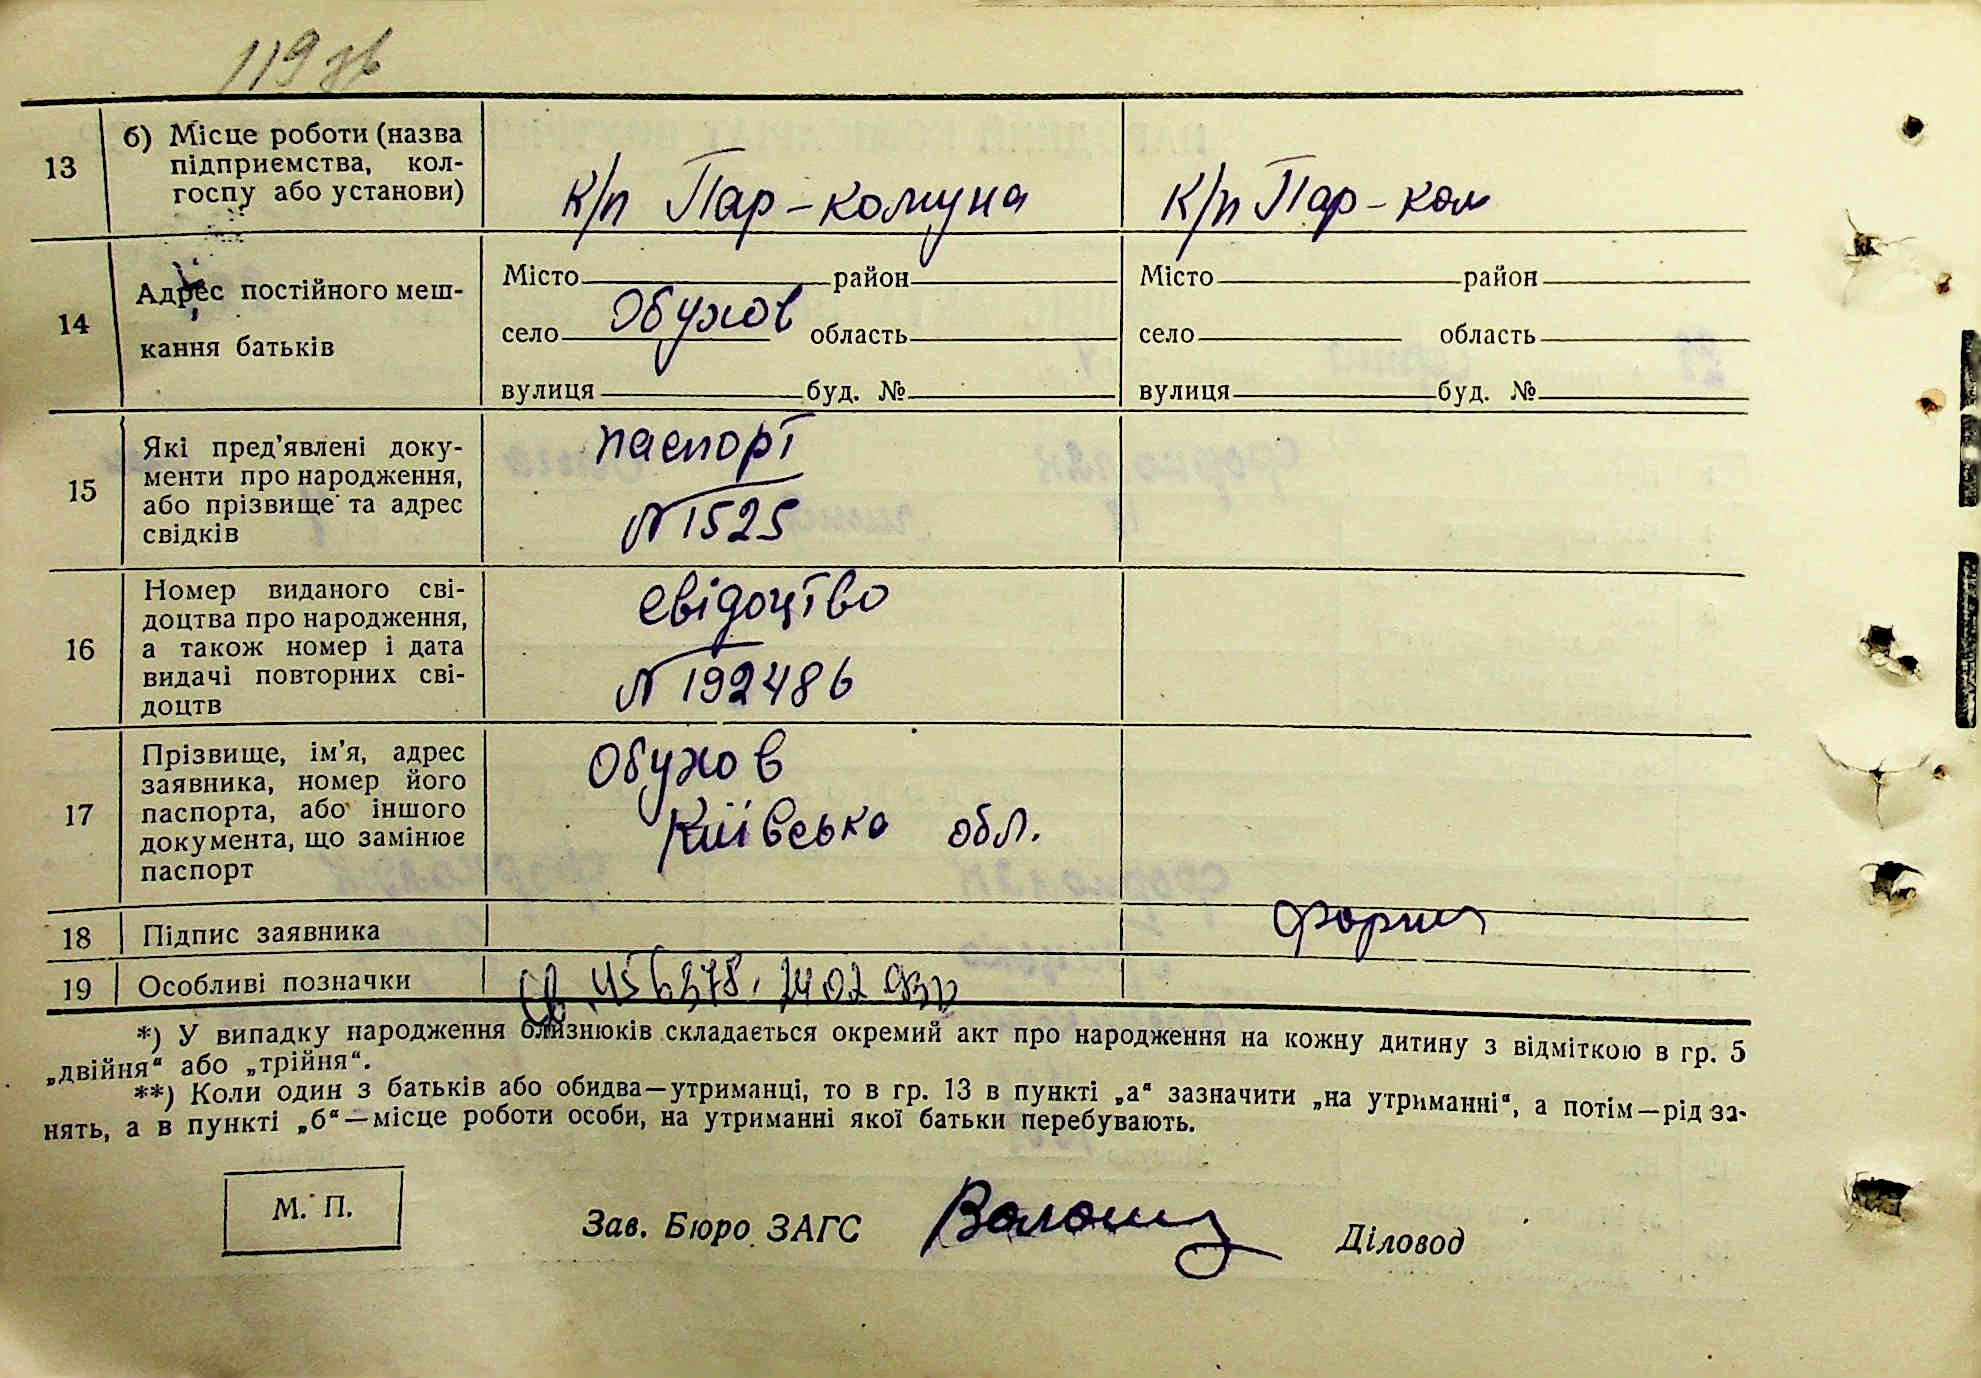 119 зв
13
б) Місце роботи (назва
підприємства, кол-
госпу або установи)
к/п Пар-комуна
к/п Пар-ком
14
Адрес постійного меш-
кання батьків
Місто район
село Обухов область
вулиця буд. №
Місто район
село область
вулиця буд. №
15
Які пред’явлені доку-
менти про народження,
або прізвище та адрес
свідків
паспорт
№ 1525
16
Номер виданого сві-
доцтва про народження,
а також номер і дата
видачі повторних сві-
доцтв
свідоцтво
№ 192486
17
Прізвище, ім’я, адрес
заявника, номер його
паспорта, або іншого
документа, що замінює
паспорт
Обухов
Київська обл.
18
Підпис заявника
19
Особливі позначки
*) У випадку народження близнюків складається окремий акт про народження на кожну дитину з відміткою в гр. 5
„двійня“ або „трійня“.
**) Коли один з батьків або обидва—утриманці, то в гр. 13 в пункті „а“ зазначити „на утриманні“, а потім—рід за-
нять, а в пункті „б“—місце роботи особи, на утриманні якої батьки перебувають.
М. П.
Зав. Бюро ЗАГС
Діловод